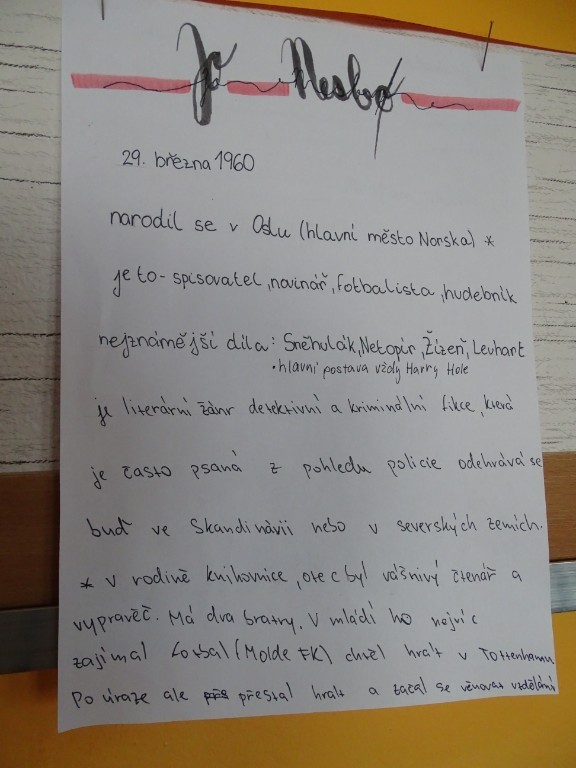 Jo Nesbø
29. března 1960
narodil se v Oslu (hlavní město Norska) *
je to - spisovatel, novinář, fotbalista, hudebník
nejznámější díla: Sněhulák, Netopír, Žízeň, Levhart
• hlavní postava vždy Harry Hole
je literární žánr detektivní a kriminální fikce, která
je často psaná z pohledu policie odehrává se
buď ve Skandinávii nebo v severských zemích.
* v rodině knihovnice, otec byl vášnivý čtenář a
vypravěč. Má dva bratry. V mládí ho nejvíc
zajímal fotbal (Molde FK) chtěl hrát v Tottenhamu
Po úraze ale přestal hrát a začal se věnovat vzdělání